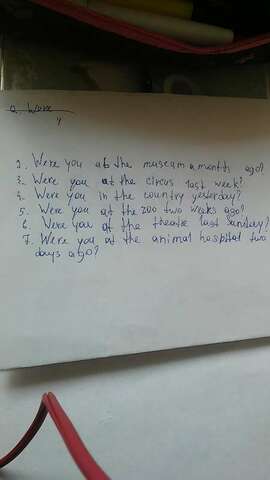 2. Were
2. Were you at the museum a months ago?
3. Were you at the circus last week?
4. Were you in the country yesterday?
5. Were you at the zoo two weeks ago?
6. Were you at the theatre last sunday?
7. Were you at the animal hospital two
days ago?